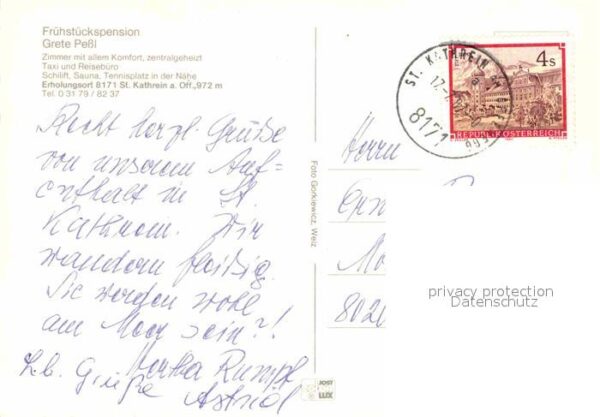 Frühstückspension
Grete Peßl
Zimmer mit allem Komfort, zentralgeheizt
Taxi und Reisebüro
Schilift, Sauna, Tennisplatz in der Nähe
Erholungsort 8171 St. Kathrein a. Off., 972 m
Tel. 0 31 79 / 82 37
Recht herzl. Grüße
von unserem Auf=
enthalt in St.
Kathrein. Wir
wandern fleißig.
Sie werden wohl
am Moor sein?!
Hertha Rumpf
Lb. Grüße Astrid
Foto Gorkiewicz, Weiz
JOST
LUX
ST. KATHREIN
8171
4 S
REPUBLIK ÖSTERREICH
Herrn
8020
privacy protection
Datenschutz